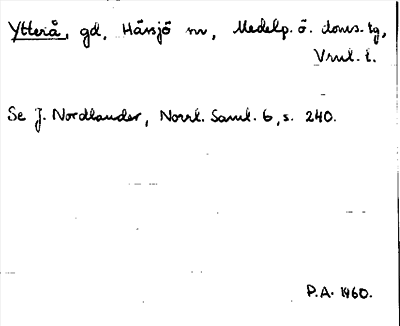 Ytterå, gd, Hässjö sn, Medelp. ö. doms. tg,
Vnul. l.
Se J. Nordlander, Norrl. Saml. 6, s. 240.
P.A. 1960.